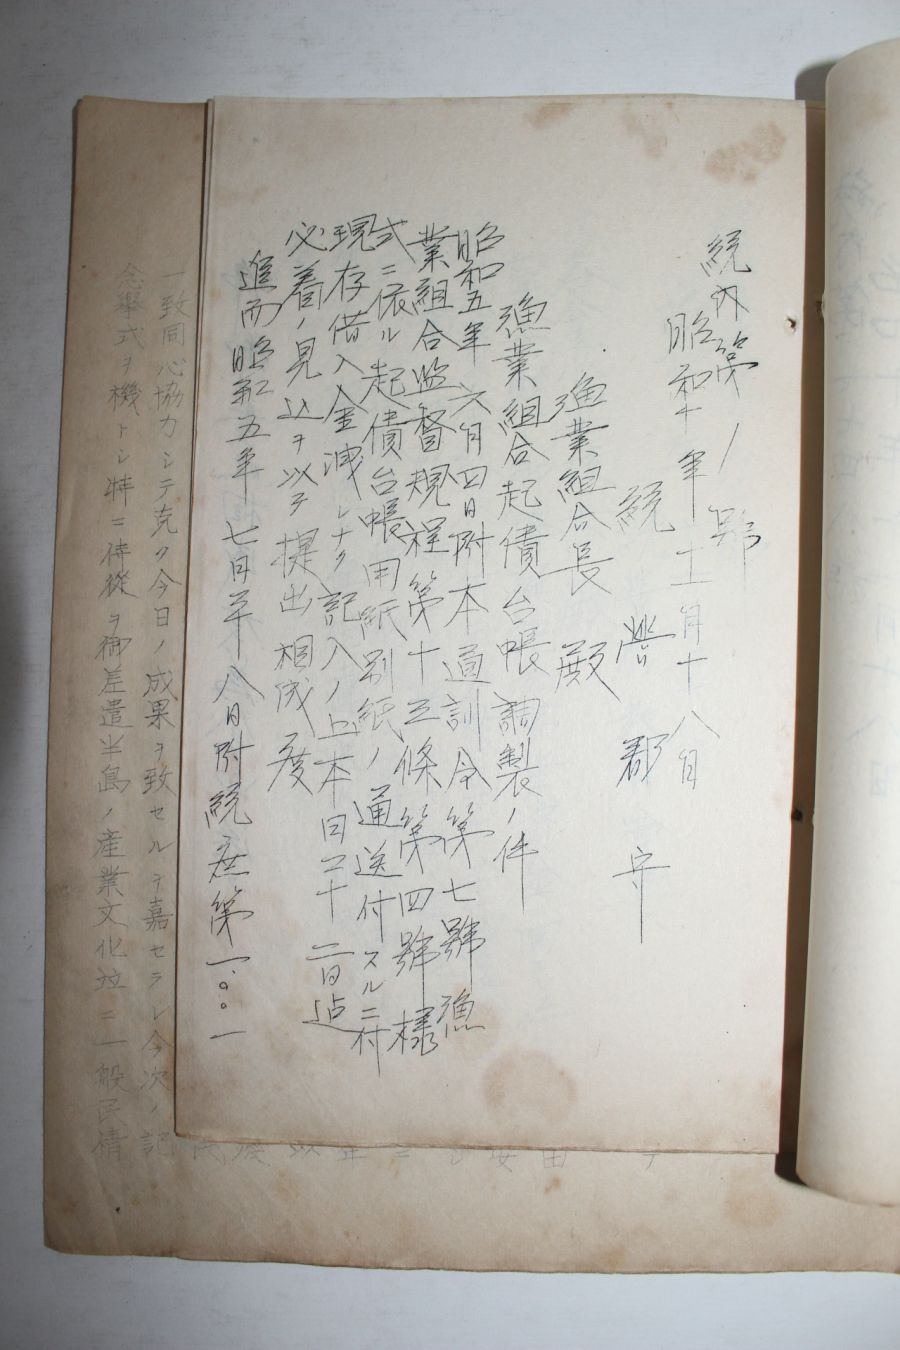 統內第ノ號
昭和十年十一月十八日
統營郡守
漁業組合長 殿
漁業組合起債台帳調製ノ件
昭和五年六月四日附本道訓令第七號漁
業組合監督規程第十三條第四號樣
式ニ依ル起債台帳用紙別紙ノ通送付スルニ付
現存借入金洩レナク記入ノ上本月二十二日迠
必着ノ見込ヲ以テ提出相成度
追而昭和五年七月十八日附統庶第一〇〇一
一致同心協力シテ克ク今日ノ成果ヲ致セルヲ嘉セラレ今次ノ記
念擧式ヲ機トシ特ニ侍從ヲ御差遣半島ノ產業文化竝ニ一般民情